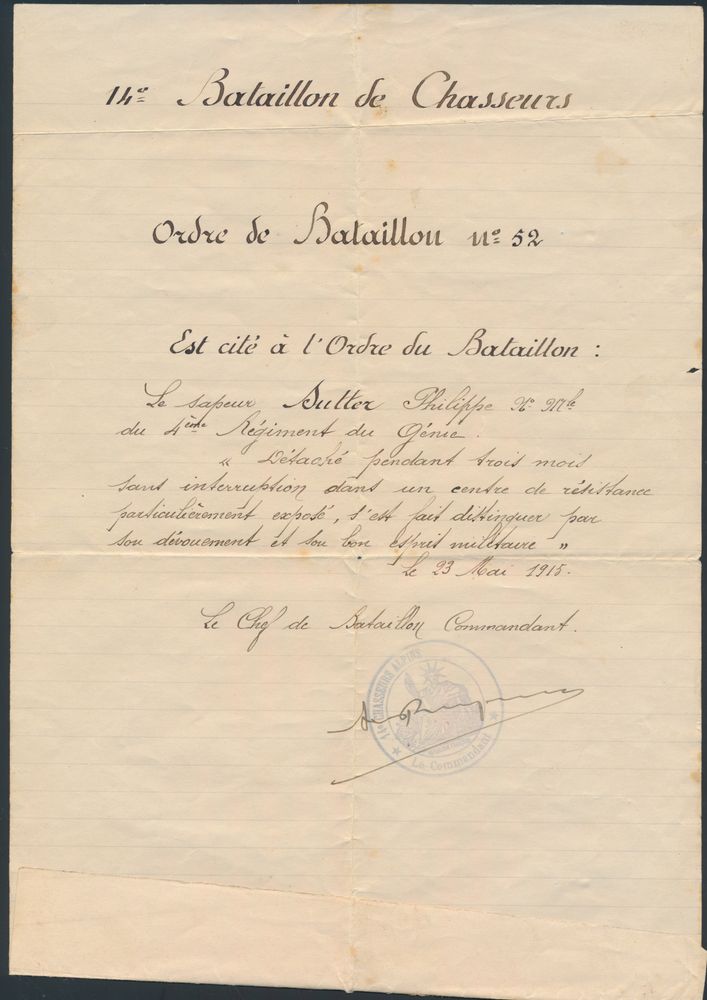 14e Bataillon de Chasseurs
Ordre de Bataillon No 52
Est cité à l'Ordre du Bataillon :
Le sapeur Sutter Philippe No Mle
du 4ème Régiment du Génie.
" Détaché pendant trois mois
sans interruption dans un centre de résistance
particulièrement exposé, s'est fait distinguer par
son dévouement et son bon esprit militaire "
Le 23 Mai 1915.
Le Chef de Bataillon Commandant.
14e CHASSEURS ALPINS
Le Commandant